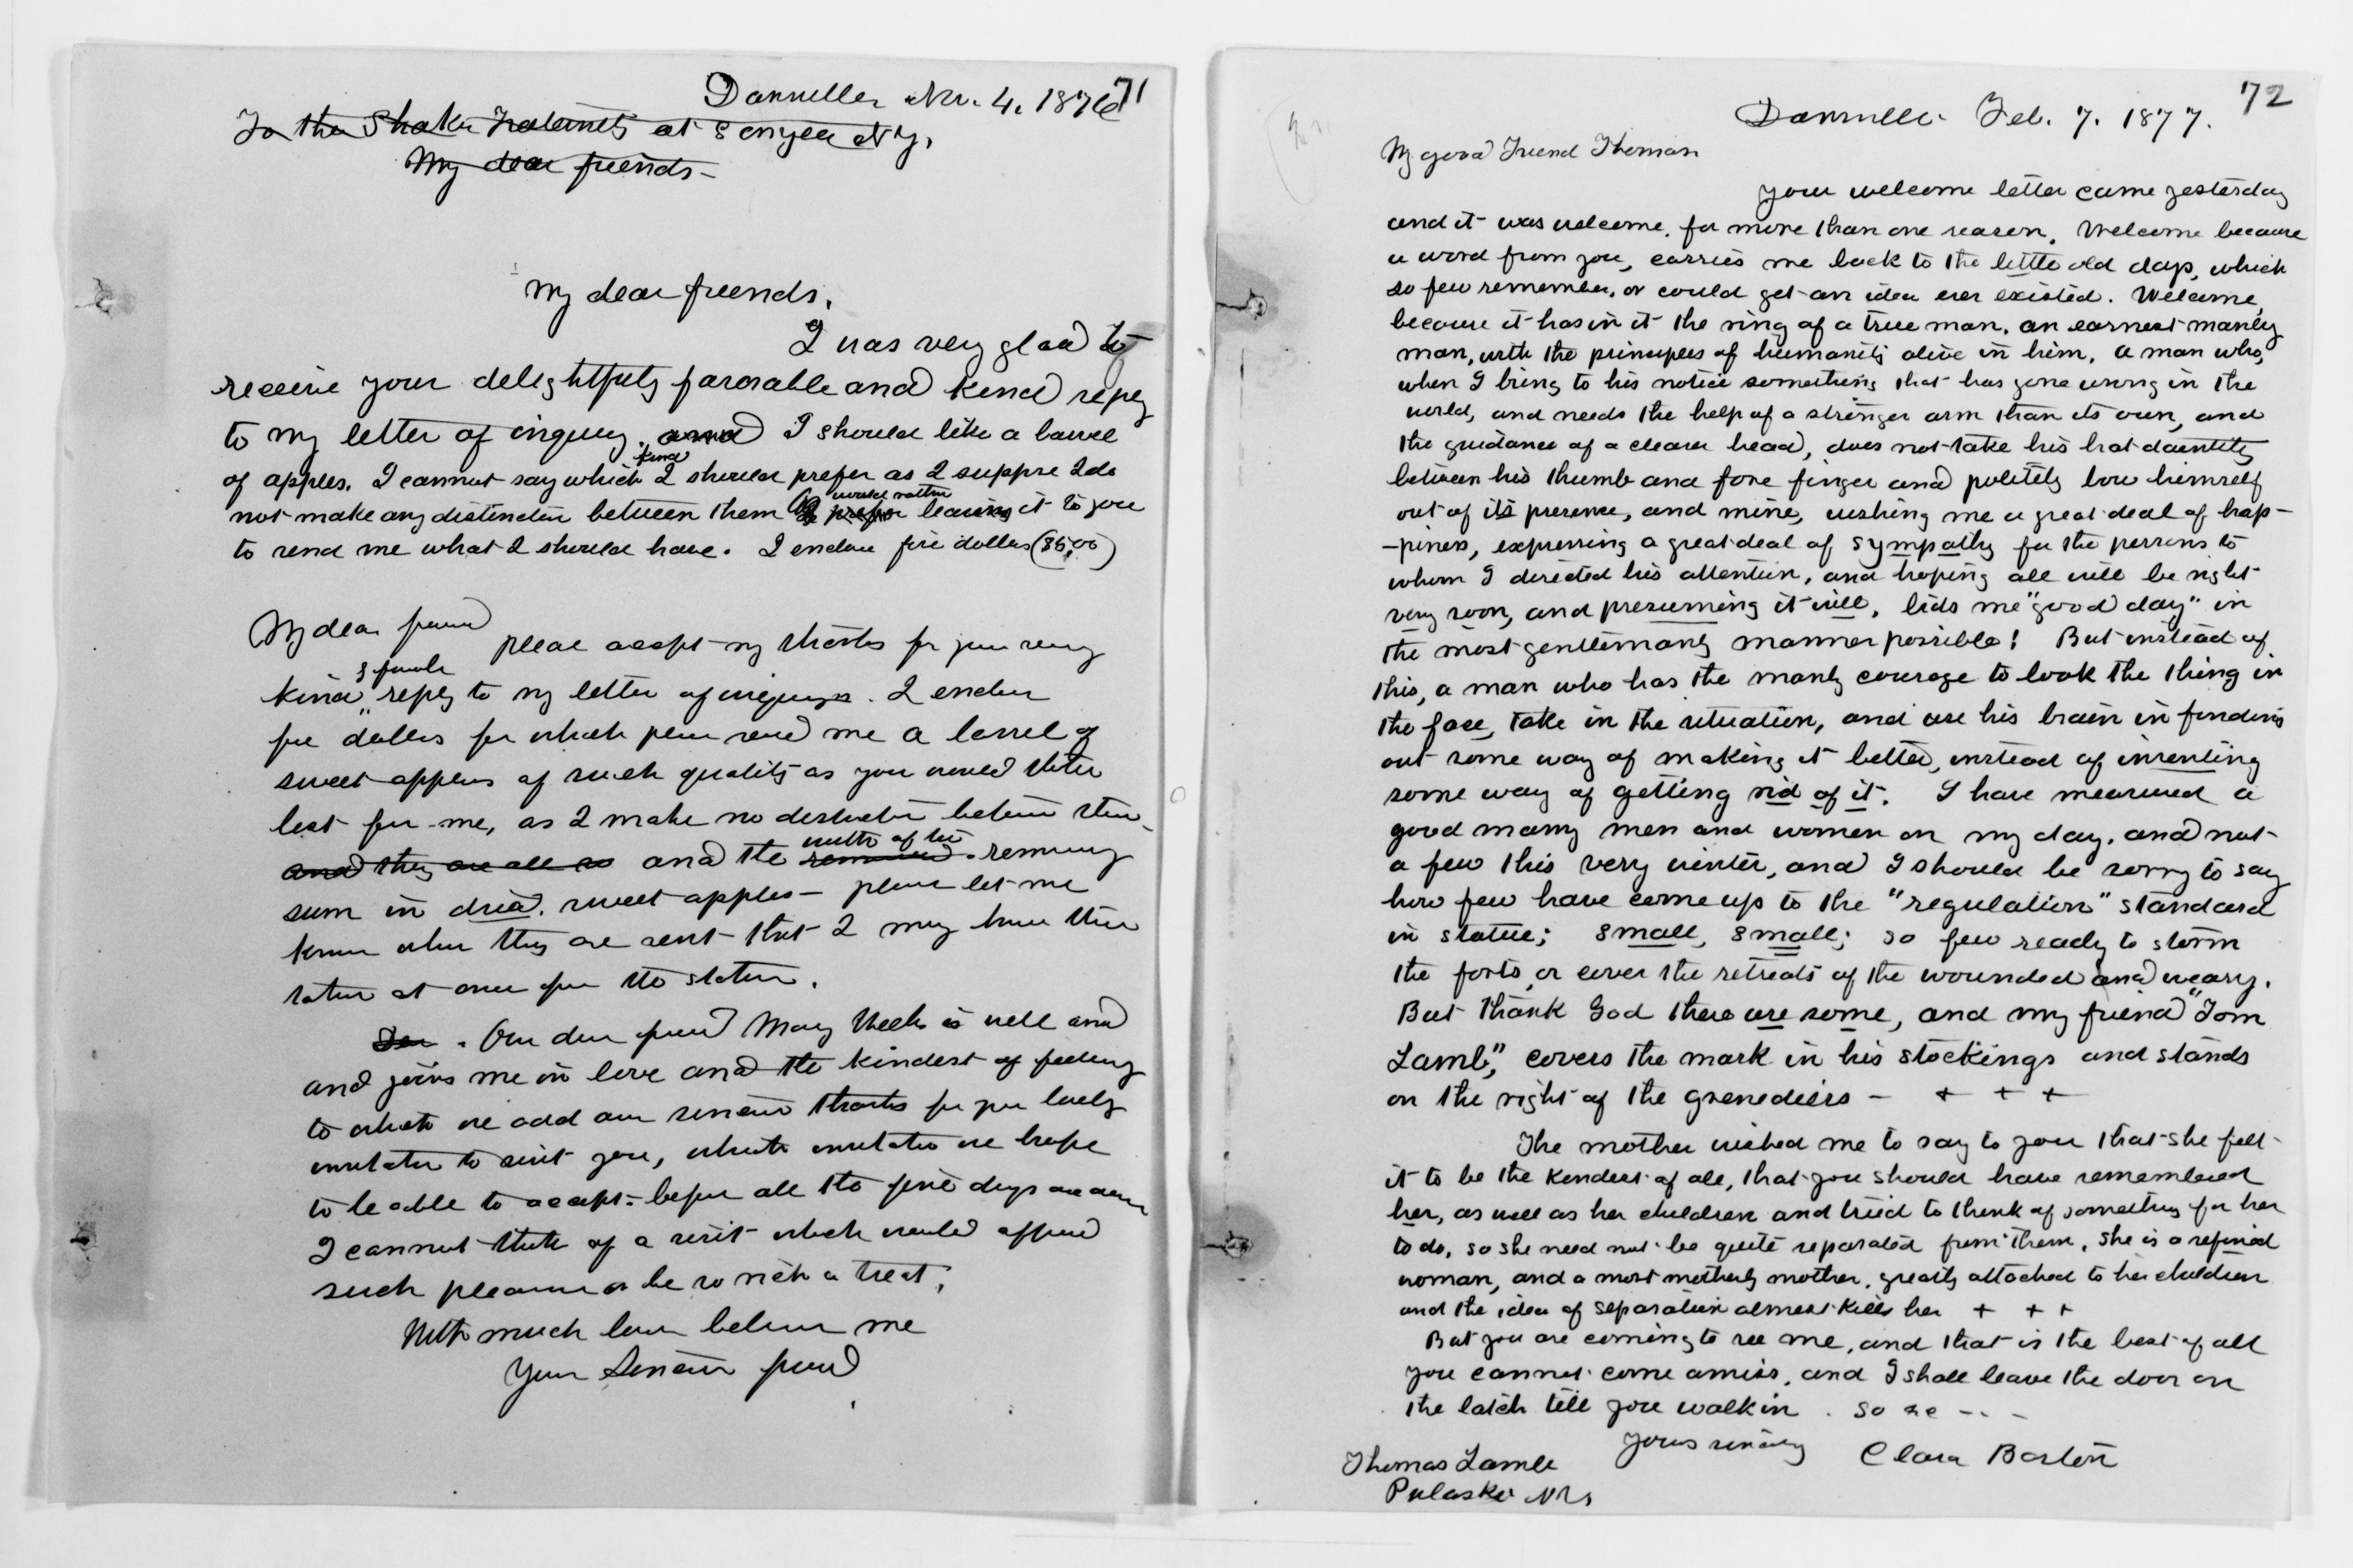 71
Dansville Nov. 4. 1876
To the Shaker Fraternity at Sonyea N.Y.
My dear friends -
My dear friends,
I was very glad to
receive your delightfully favorable and kind reply
to my letter of inquiry. and I should like a barrel
of apples. I cannot say which kind I should prefer as I suppose I do
not make any distinction between them I prefer would rather leaving it to you
to send me what I should have. I enclose five dollars ($5.00)
My dear friend
Please accept my thanks for your very
kind & favorable reply to my letter of inquiry. I enclose
five dollars for which please send me a barrel of
sweet apples of such quality as you would think
best for me, as I make no distinction between them
and they are all so and the remainder worth of the remaining
sum in dried sweet apples - please let me
know when they are sent that I may have them
taken at once from the station.
Our dear friend Mary Weeks is well and
and joins me in love and the kindest of feeling
to which we add our sincere thanks for your lovely
invitation to visit you, which invitation we hope
to be able to accept before all the fine days are over
I cannot think of a visit which would afford
such pleasure or be so rich a treat,
With much love believe me
Your Sincere friend
72
Dansville Feb. 7. 1877.
My good Friend Thomas
Your welcome letter came yesterday
and it was welcome, for more than one reason. Welcome because
a word from you, carries me back to the little old days, which
so few remember, or could get an idea ever existed. Welcome,
because it has in it the ring of a true man, an earnest manly
man, with the principles of humanity alive in him, a man who,
when I bring to his notice something that has gone wrong in the
world, and needs the help of a stronger arm than its own, and
the guidance of a clearer head, does not take his hat daintily
between his thumb and fore finger and politely bow himself
out of its presence, and mine, wishing me a great deal of hap-
-piness, expressing a great deal of sympathy for the persons to
whom I directed his attention, and hoping all will be right
very soon, and presuming it will, bids me "good day" in
the most gentlemanly manner possible! But instead of
this, a man who has the manly courage to look the thing in
the face, take in the situation, and use his brain in finding
out some way of making it better, instead of inventing
some way of getting rid of it. I have measured a
good many men and women in my day, and not
a few this very winter, and I should be sorry to say
how few have come up to the "regulation" standard
in stature; small, small; so few ready to storm
the forts, or cover the retreats of the wounded and weary.
But thank God there are some, and my friend "Tom
Lamb", covers the mark in his stockings and stands
on the right of the grenediers - + + +
The mother wished me to say to you that she felt
it to be the kindest of all, that you should have remembered
her, as well as her children and tried to think of something for her
to do, so she need not be quite separated from them. She is a refined
woman, and a most motherly mother, greatly attached to her children
and the idea of separation almost kills her + + +
But you are coming to see me, and that is the best of all
you cannot come amiss, and I shall leave the door on
the latch till you walk in. So
Yours sincerely Clara Barton
Thomas Lamb
Pulaski N.Y.